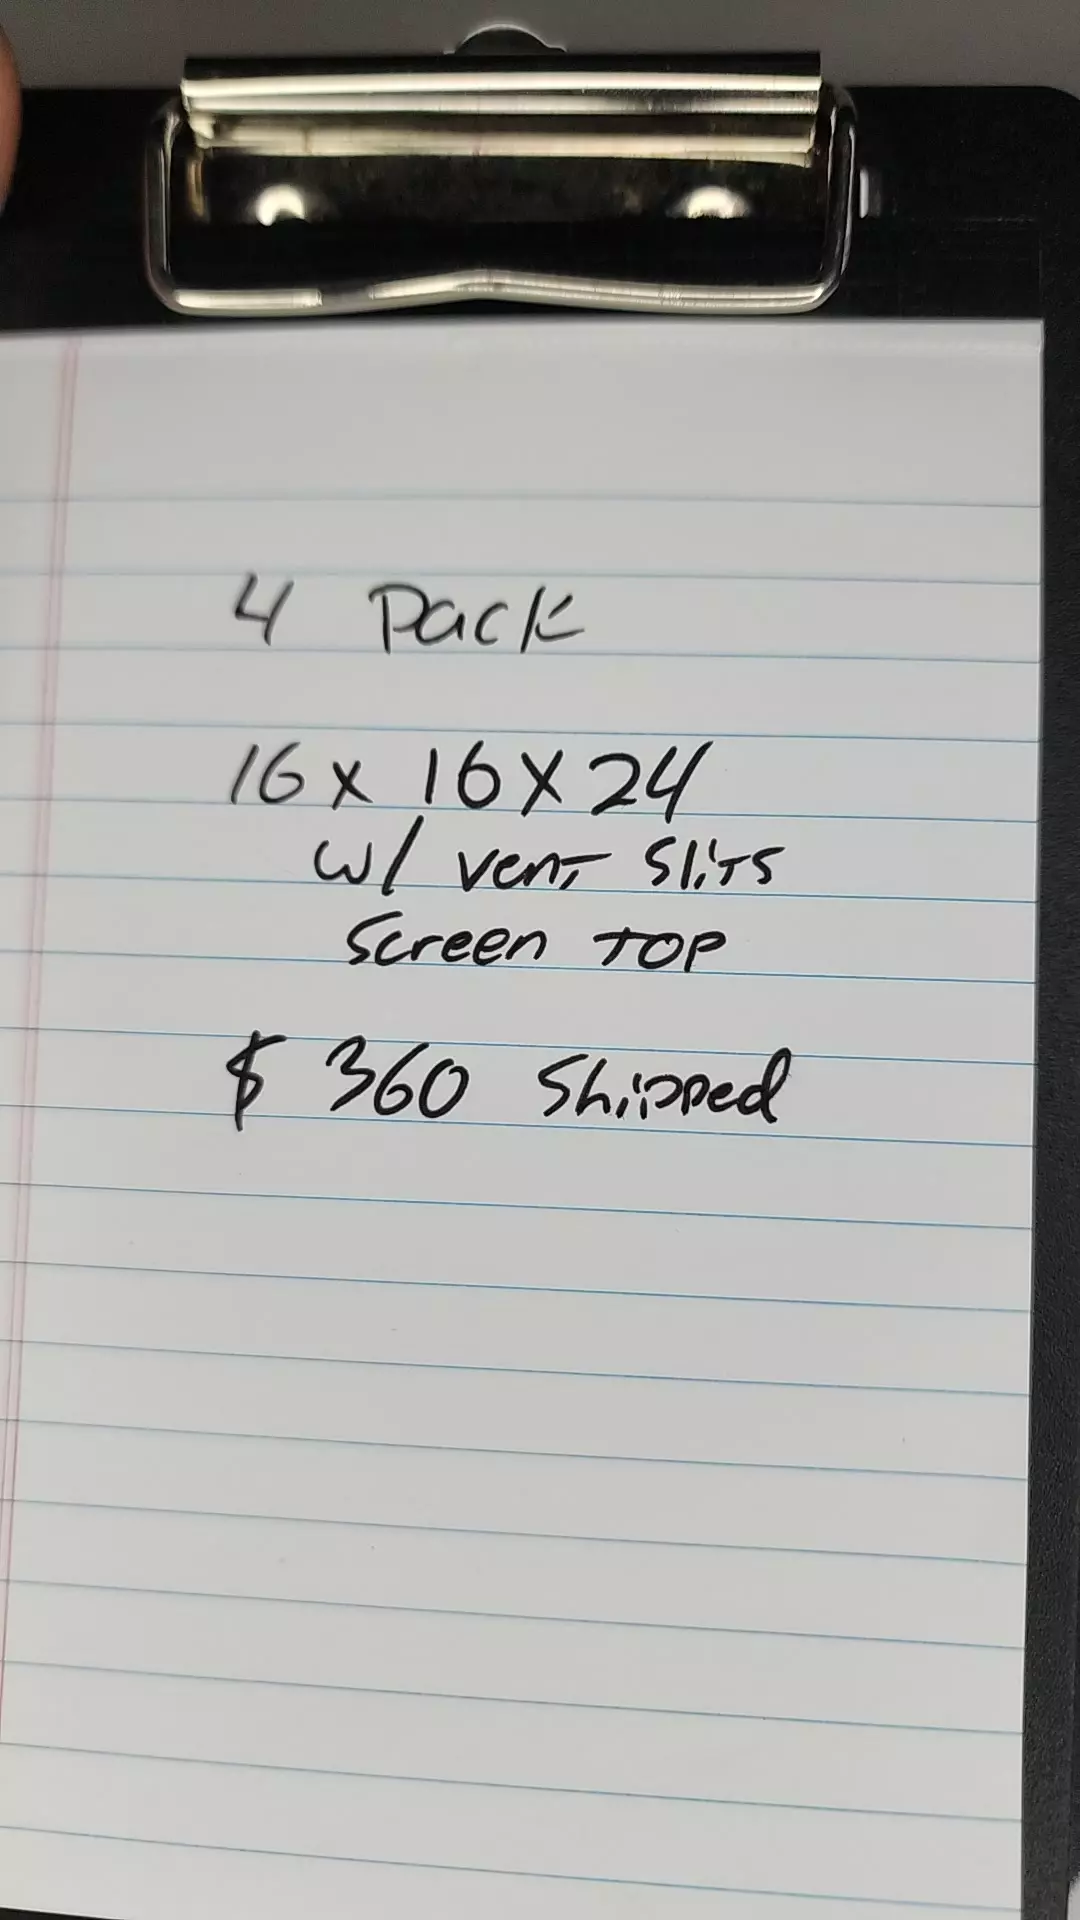 4 Pack
16 x 16 x 24
w/ vent slits
Screen TOP
$ 360 Shipped